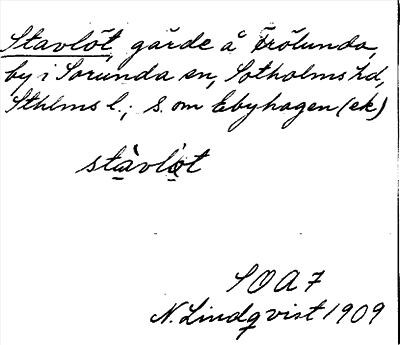 Stavlöt, gärde å Trölunda,
by i Sorunda sn, Sotholms hd,
Sthlms l.; s. om Ebyhagen (ek)
stàvlot
SOA 7
N. Lindqvist 1909